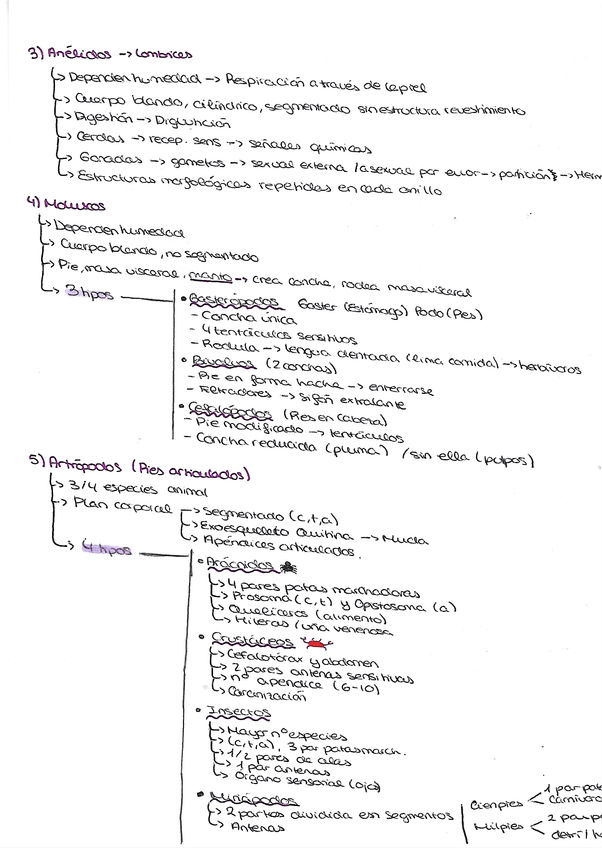 3) Anélidos -> Lombrices
Dependen humedad -> Respiración a través de la piel
Cuerpo blando, cilíndrico, segmentado sin estructura revestimiento
Digestión -> Diglución
Cerdas -> recep. sens -> señales químicas
Gonadas -> gametos -> sexual externa / asexual por error -> partición ->
Estructuras morfológicas repetidas en cada anillo
4) Moluscos
Dependen humedad
Cuerpo blando, no segmentado
Pie, masa visceral, manto -> crea concha, rodea masa visceral
3 tipos
• Gasterópodos Gaster (Estómago) Podo (Pies)
- Concha única
- 4 tentáculos sensitivos
- Radula -> lengua dentada (lima comida) -> herbívoros
• Bivalvos (2 conchas)
- Pie en forma hacha -> enterrarse
- -> sifón exhalante
• Cefalópodos (Pies en cabeza)
- Pie modificado -> tentáculos
- Concha reducida (pluma) / sin ella (pulpos)
5) Artrópodos (Pies articulados)
3/4 especies animal
Plan corporal -> Segmentado (c,t,a)
Exoesqueleto Quitina -> Muda
Apéndices articulados.
4 tipos
• Arácnidos
4 pares patas marchadoras
Prosoma (c,t) y Opistosoma (a)
Quelíceros (alimento)
Hileras / uña venenosa
• Crustáceos
Cefalotórax y abdomen
2 pares antenas sensitivas
nº apendice (6-10)
Carcinización
• Insectos
Mayor nº especies
(c,t,a), 3 par patas march.
1/2 pares de alas
1 par antenas
Órgano sensorial (ojo)
• Miriápodos
2 partes dividida en segmentos
Antenas
Cienpies < 1 par
Milpies < 2 par